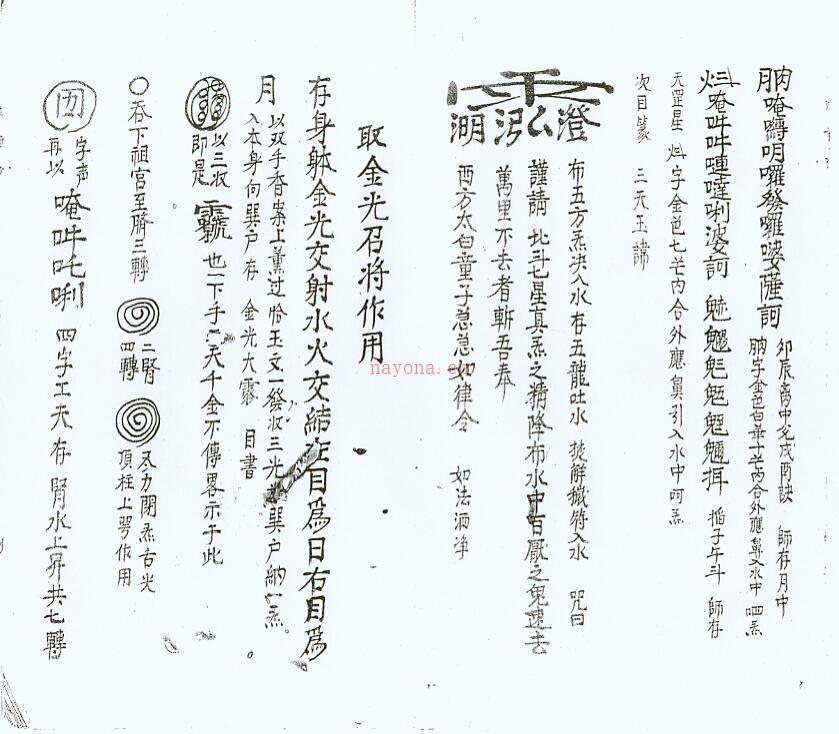 唵嚩吽囉發囉婆薩訶
卯辰離中兌戌酉訣 師存月中
字金色白華十芒內合外應鼻入水中 呬炁
唵吽吽噠唎婆訶 魁𩲃魓𩳐魒 掐子午斗 師存
天罡星 字金色七芒內合外應鼻引入水中呵炁
次目篆 三天玉諱
澄
泓
湖
布五方炁決入水 存五龍吐水 焚解穢符入水 咒曰
謹請 北斗七星真炁之精降布水中百厭之鬼速去
萬里不去者斬吾奉
西方太白童子急急如律令 如法洒淨
取金光召將作用
存身躰金光交射水火交結左目為日右目為
月 以双手香案上薰过 玉文一發收三光 巽户納一炁。
入本身向巽户存 金光大 目書
以三收
即是
也一下手 天千金不傳畧示于此
○吞下祖宫至臍三轉
二腎
四轉
尽力閉炁舌尖
頂柱上腭作用
字声
再以
唵吽吒唎 四字工夫存 腎水上昇共七轉
nayona.cn